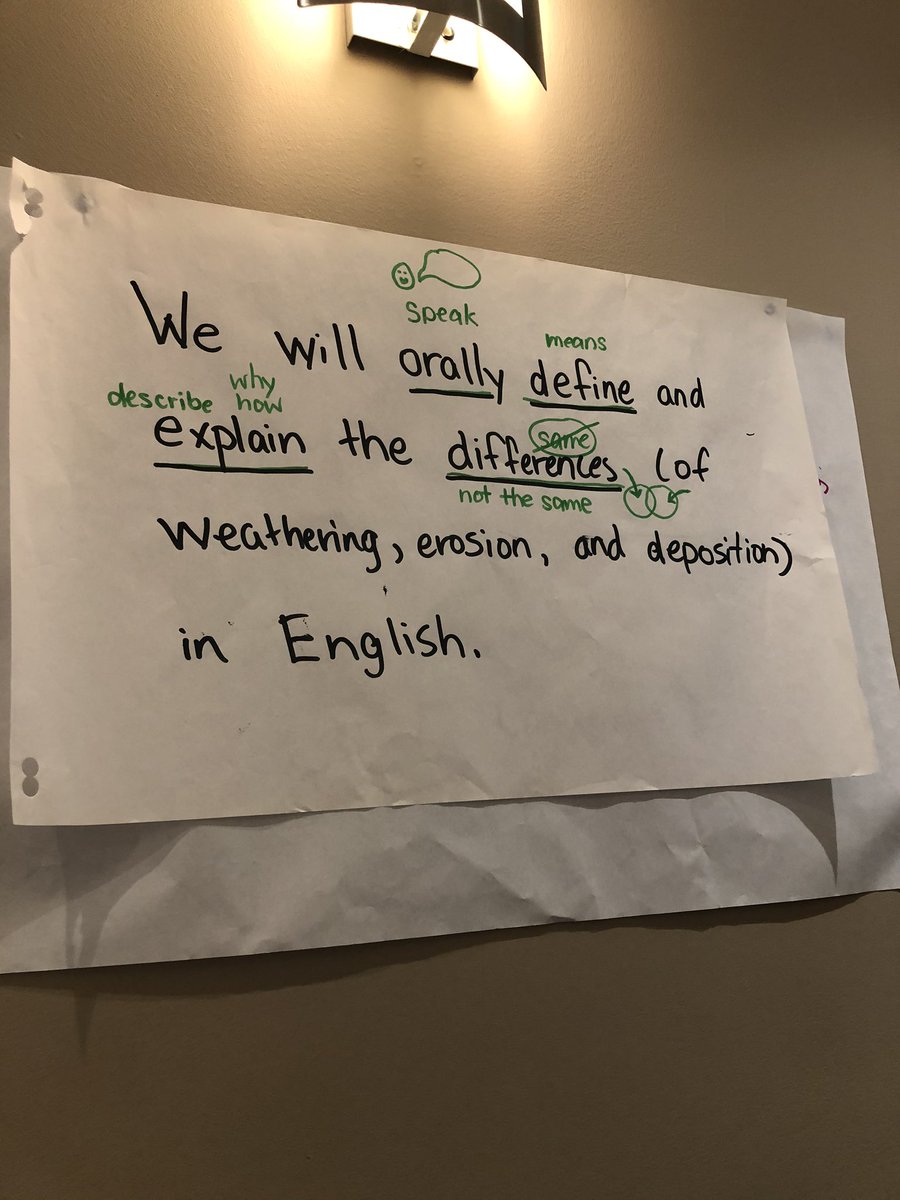 speak
means
We will orally define and
why
describe how
same
explain the differences (of
not the same
weathering, erosion, and deposition)
in English.